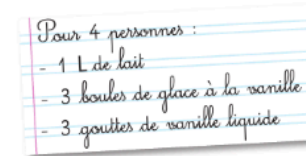 Pour 4 personnes :
- 1 L de lait
- 3 boules de glace à la vanille
- 3 gouttes de vanille liquide